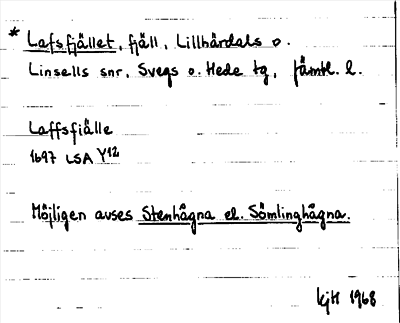 * Lafsfjället, fjäll, Lillhärdals o.
Linsells snr, Svegs o. Hede tg, Jämtl. l.
Laffsfiälle
1697 LSA Y12
Möjligen avses Stenhågna el. Sömlinghågna.
kjH 1968